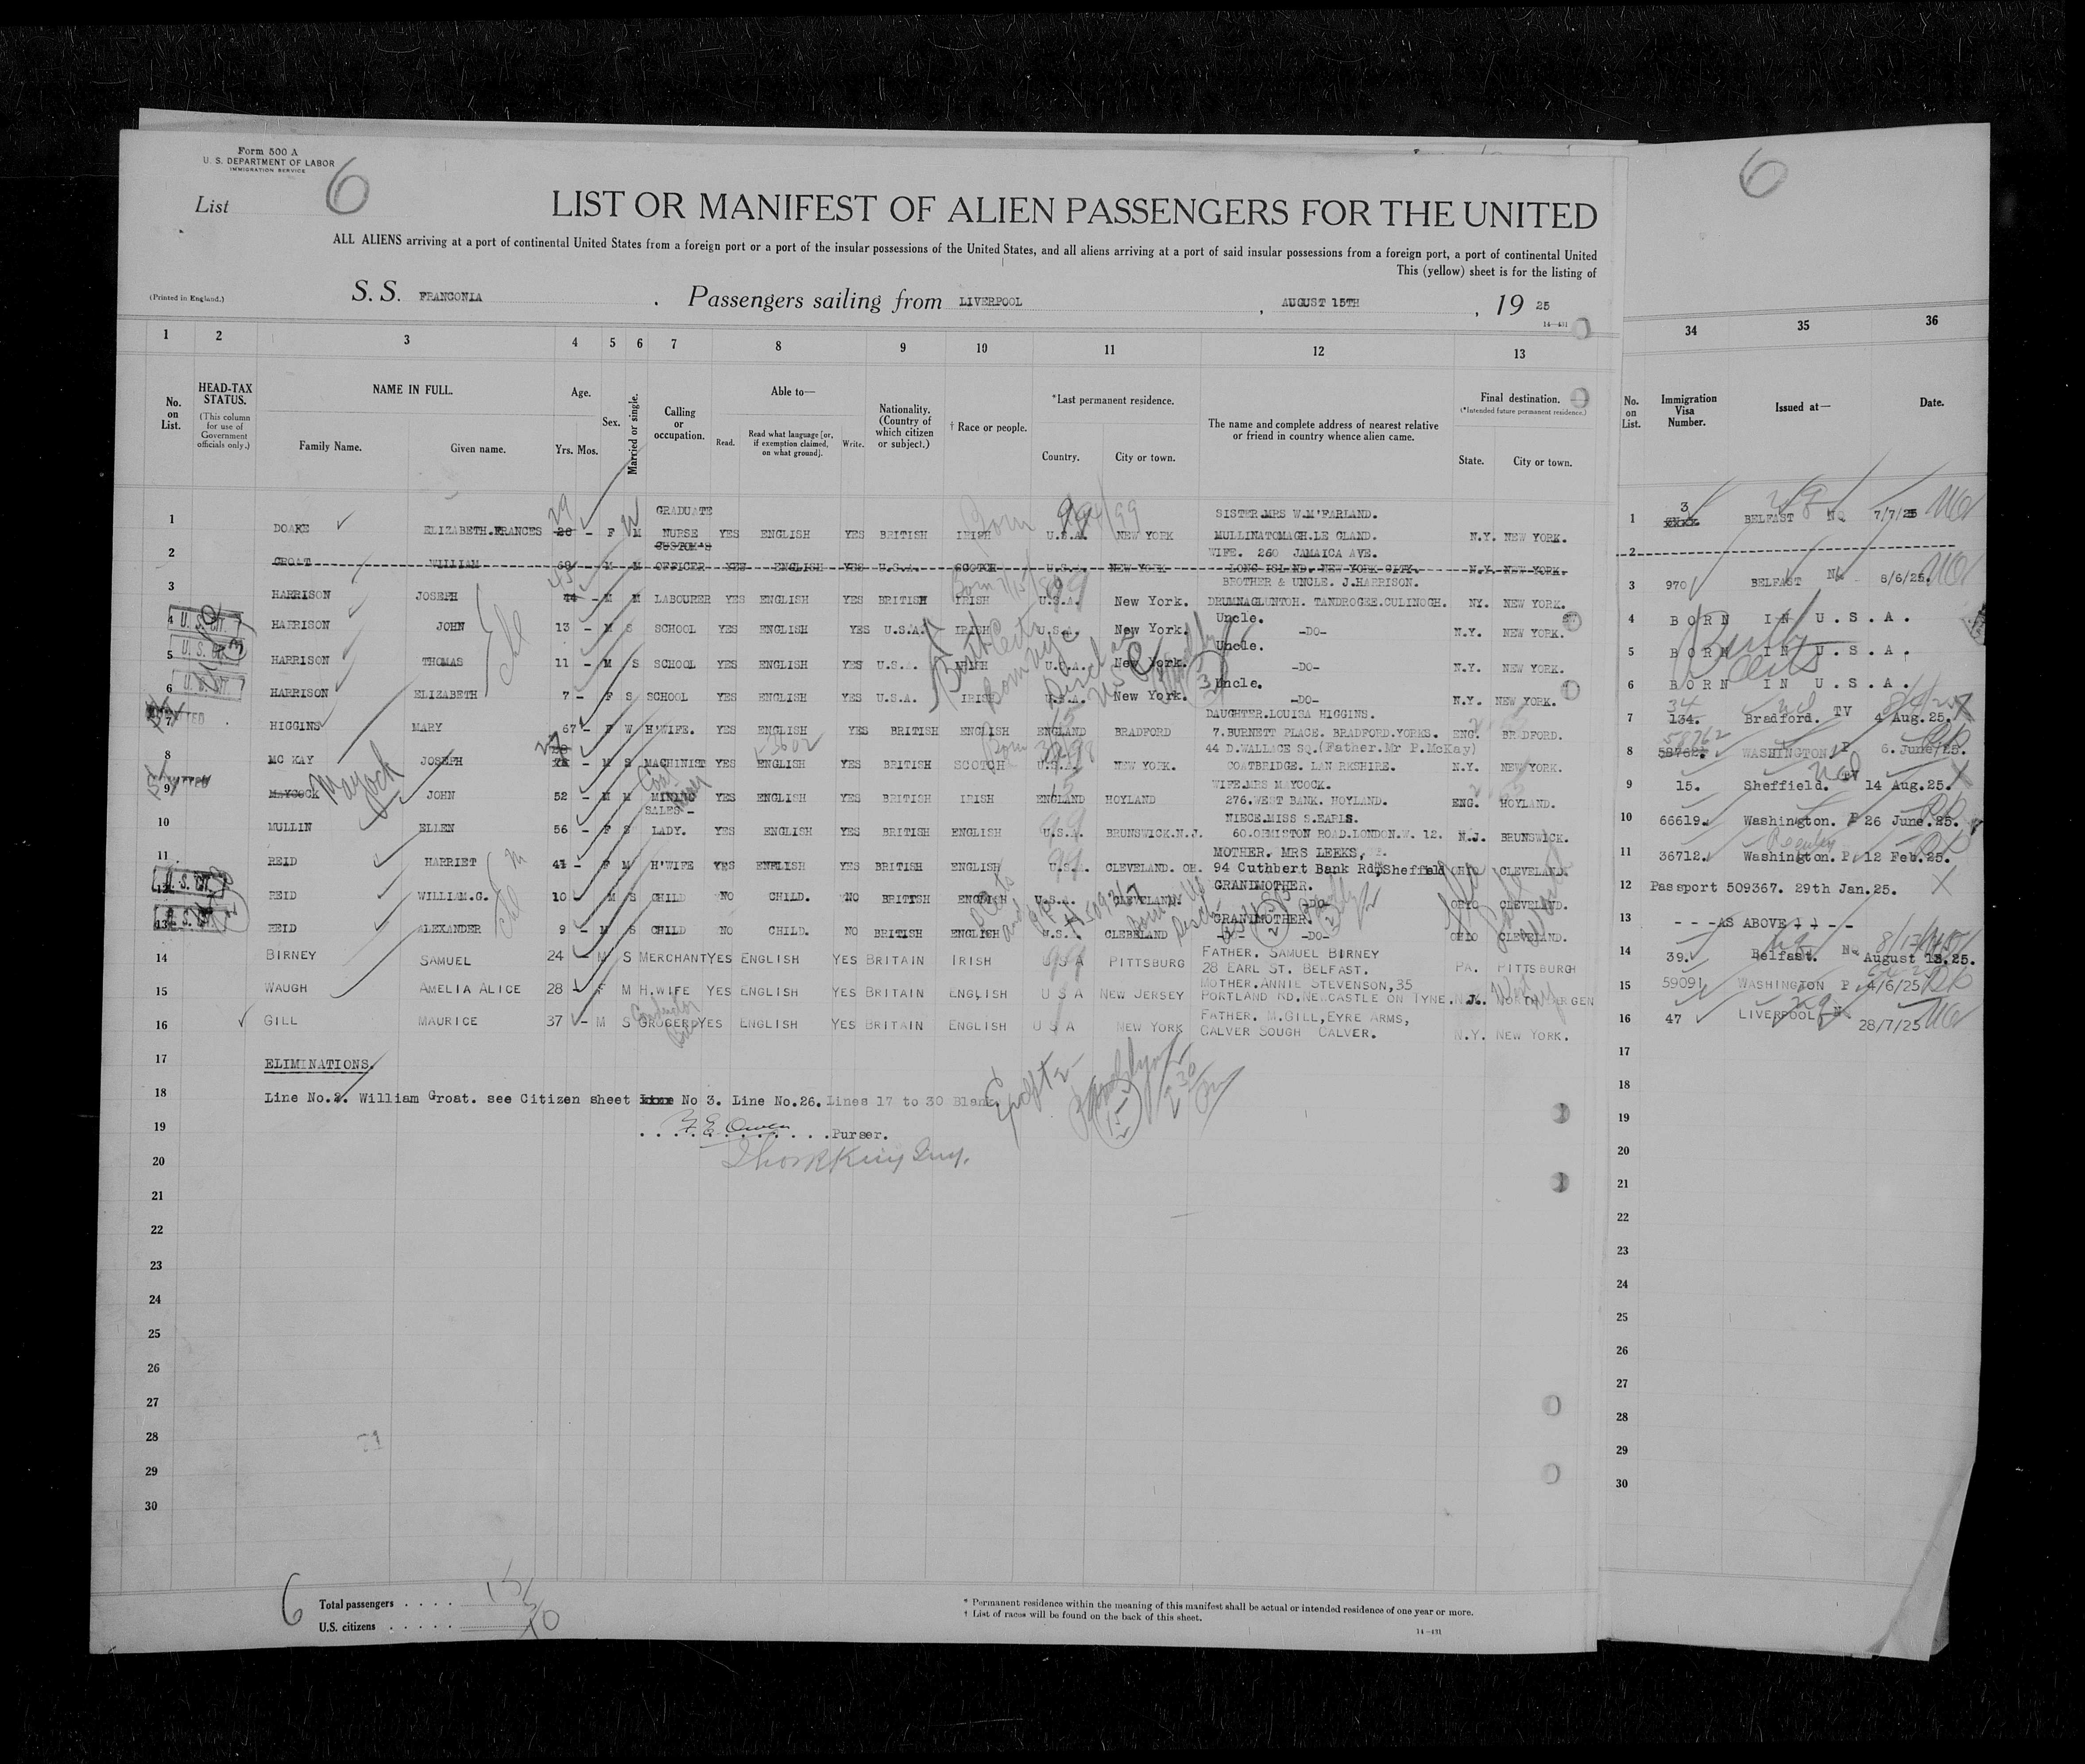 Form 500 A
U. S. DEPARTMENT OF LABOR
IMMIGRATION SERVICE
List 6
6
LIST OR MANIFEST OF ALIEN PASSENGERS FOR THE UNITED
ALL ALIENS arriving at a port of continental United States from a foreign port or a port of the insular possessions of the United States, and all aliens arriving at a port of said insular possessions from a foreign port, a port of continental United
This (yellow) sheet is for the listing of
(Printed in England.)
S. S. FRANCONIA . Passengers sailing from LIVERPOOL , AUGUST 15TH , 19 25
14—431
1 2 3 4 5 6 7 8 9 10 11 12 13 34 35 36
No. on List.
HEAD-TAX STATUS.
(This column for use of Government officials only.)
NAME IN FULL.
Family Name. Given name.
Age.
Yrs. Mos.
Sex.
Married or single.
Calling or occupation.
Able to—
Read. Read what language [or, if exemption claimed, on what ground]. Write.
Nationality. (Country of which citizen or subject.)
† Race or people.
*Last permanent residence.
Country. City or town.
The name and complete address of nearest relative or friend in country whence alien came.
Final destination.
(*Intended future permanent residence.)
State. City or town.
No. on List.
Immigration Visa Number.
Issued at—
Date.
GRADUATE SISTER.MRS W.M'FARLAND.
1 DOAKE ELIZABETH.FRANCES 29 28 - F M NURSE YES ENGLISH YES BRITISH IRISH U.S.A. NEW YORK MULLINATOMAGH.LE GLAND. N.Y. NEW YORK. 1 3 BELFAST 7/7/25
CUSTOM'S WIFE. 260 JAMAICA AVE.
2 GROAT WILLIAM 68 - M M OFFICER YES ENGLISH YES U.S.A. SCOTCH U.S.A. NEW YORK LONG ISLAND. NEW YORK CITY. N.Y. NEW YORK. 2
BROTHER & UNCLE. J.HARRISON.
3 HARRISON JOSEPH 44 - M M LABOURER YES ENGLISH YES BRITISH IRISH U.S.A. New York. DRUMNAGLUNTOH. TANDROGEE.CULINOGH. NY. NEW YORK. 3 970 BELFAST 8/6/25.
U. S. CIT. Uncle.
4 HARRISON JOHN 13 - M S SCHOOL YES ENGLISH YES U.S.A. IRISH U.S.A. New York. -DO- N.Y. NEW YORK. 4 BORN IN U.S.A.
U. S. CIT. Uncle.
5 HARRISON THOMAS 11 - M S SCHOOL YES ENGLISH YES U.S.A. IRISH U.S.A. New York. -DO- N.Y. NEW YORK. 5 BORN IN U.S.A.
U. S. CIT. Uncle.
6 HARRISON ELIZABETH 7 - F S SCHOOL YES ENGLISH YES U.S.A. IRISH U.S.A. New York. -DO- N.Y. NEW YORK. 6 BORN IN U.S.A.
DAUGHTER.LOUISA HIGGINS.
7 HIGGINS MARY 67 - F W H'WIFE. YES ENGLISH YES BRITISH ENGLISH ENGLAND BRADFORD 7.BURNETT PLACE. BRADFORD.YORKS. ENG. BRADFORD. 7 34 134. Bradford. TV 4 Aug.25.
44 D.WALLACE SQ.(Father.Mr P.McKay)
8 MC KAY JOSEPH - M S MACHINIST YES ENGLISH YES BRITISH SCOTCH U.S.A. NEW YORK. COATBRIDGE. LANARKSHIRE. N.Y. NEW YORK. 8 58762 WASHINGTON. P 6. June/25.
WIFE.MRS MAYCOCK.
9 MAYCOCK Maycock JOHN 52 - M M MINING YES ENGLISH YES BRITISH IRISH ENGLAND HOYLAND 276.WEST BANK. HOYLAND. ENG. HOYLAND. 9 15. Sheffield. TV 14 Aug.25.
SALES- NIECE.MISS S.EARLS.
10 MULLIN ELLEN 56 - F S LADY. YES ENGLISH YES BRITISH ENGLISH U.S.A. BRUNSWICK.N.J. 60.ORMISTON ROAD.LONDON.W. 12. N.J. BRUNSWICK. 10 66619. Washington. P 26 June.25.
MOTHER. MRS LEEKS,
11 REID HARRIET 41 - F M H'WIFE YES ENFLISH YES BRITISH ENGLISH U.S.A. CLEVELAND. OH. 94 Cuthbert Bank Rd, Sheffield OHIO CLEVELAND. 11 36712. Washington. P. 12 Feb.25.
U. S. CIT. GRANDMOTHER.
12 REID WILLIAM.G. 10 - M S CHILD NO CHILD. NO BRITISH ENGLISH CLEVELAND. -DO- OHIO CLEVELAND. 12 Passport 509367. 29th Jan.25.
U. S. CIT. GRANDMOTHER.
13 REID ALEXANDER 9 - M S CHILD NO CHILD. NO BRITISH ENGLISH U.S.A. CLEBELAND -DO- OHIO CLEVELAND. 13 - - -AS ABOVE - - - -
FATHER. SAMUEL BIRNEY
14 BIRNEY SAMUEL 24 - M S MERCHANT YES ENGLISH YES BRITAIN IRISH U S A PITTSBURG 28 EARL ST. BELFAST. PA. PITTSBURGH 14 39. Belfast. August 12.25.
MOTHER.ANNIE STEVENSON,35
15 WAUGH AMELIA ALICE 28 - F M H.WIFE YES ENGLISH YES BRITAIN ENGLISH U S A NEW JERSEY PORTLAND RD.NEWCASTLE ON TYNE. N.J. 15 59091 WASHINGTON P 4/6/25
FATHER. M.GILL,EYRE ARMS,
16 GILL MAURICE 37 - M S GROCER YES ENGLISH YES BRITAIN ENGLISH U S A NEW YORK CALVER SOUGH CALVER. N.Y. NEW YORK. 16 47 LIVERPOOL 28/7/25
17 ELIMINATIONS. 17
18 Line No.2. William Groat. see Citizen sheet No 3. Line No.26. Lines 17 to 30 Blank. 18
19 F. E. Owen Purser. 19
20 20
21 21
22 22
23 23
24 24
25 25
26 26
27 27
28 28
29 29
30 30
6 Total passengers . . . . 15
U.S. citizens . . . . .
* Permanent residence within the meaning of this manifest shall be actual or intended residence of one year or more.
† List of races will be found on the back of this sheet.
14—431